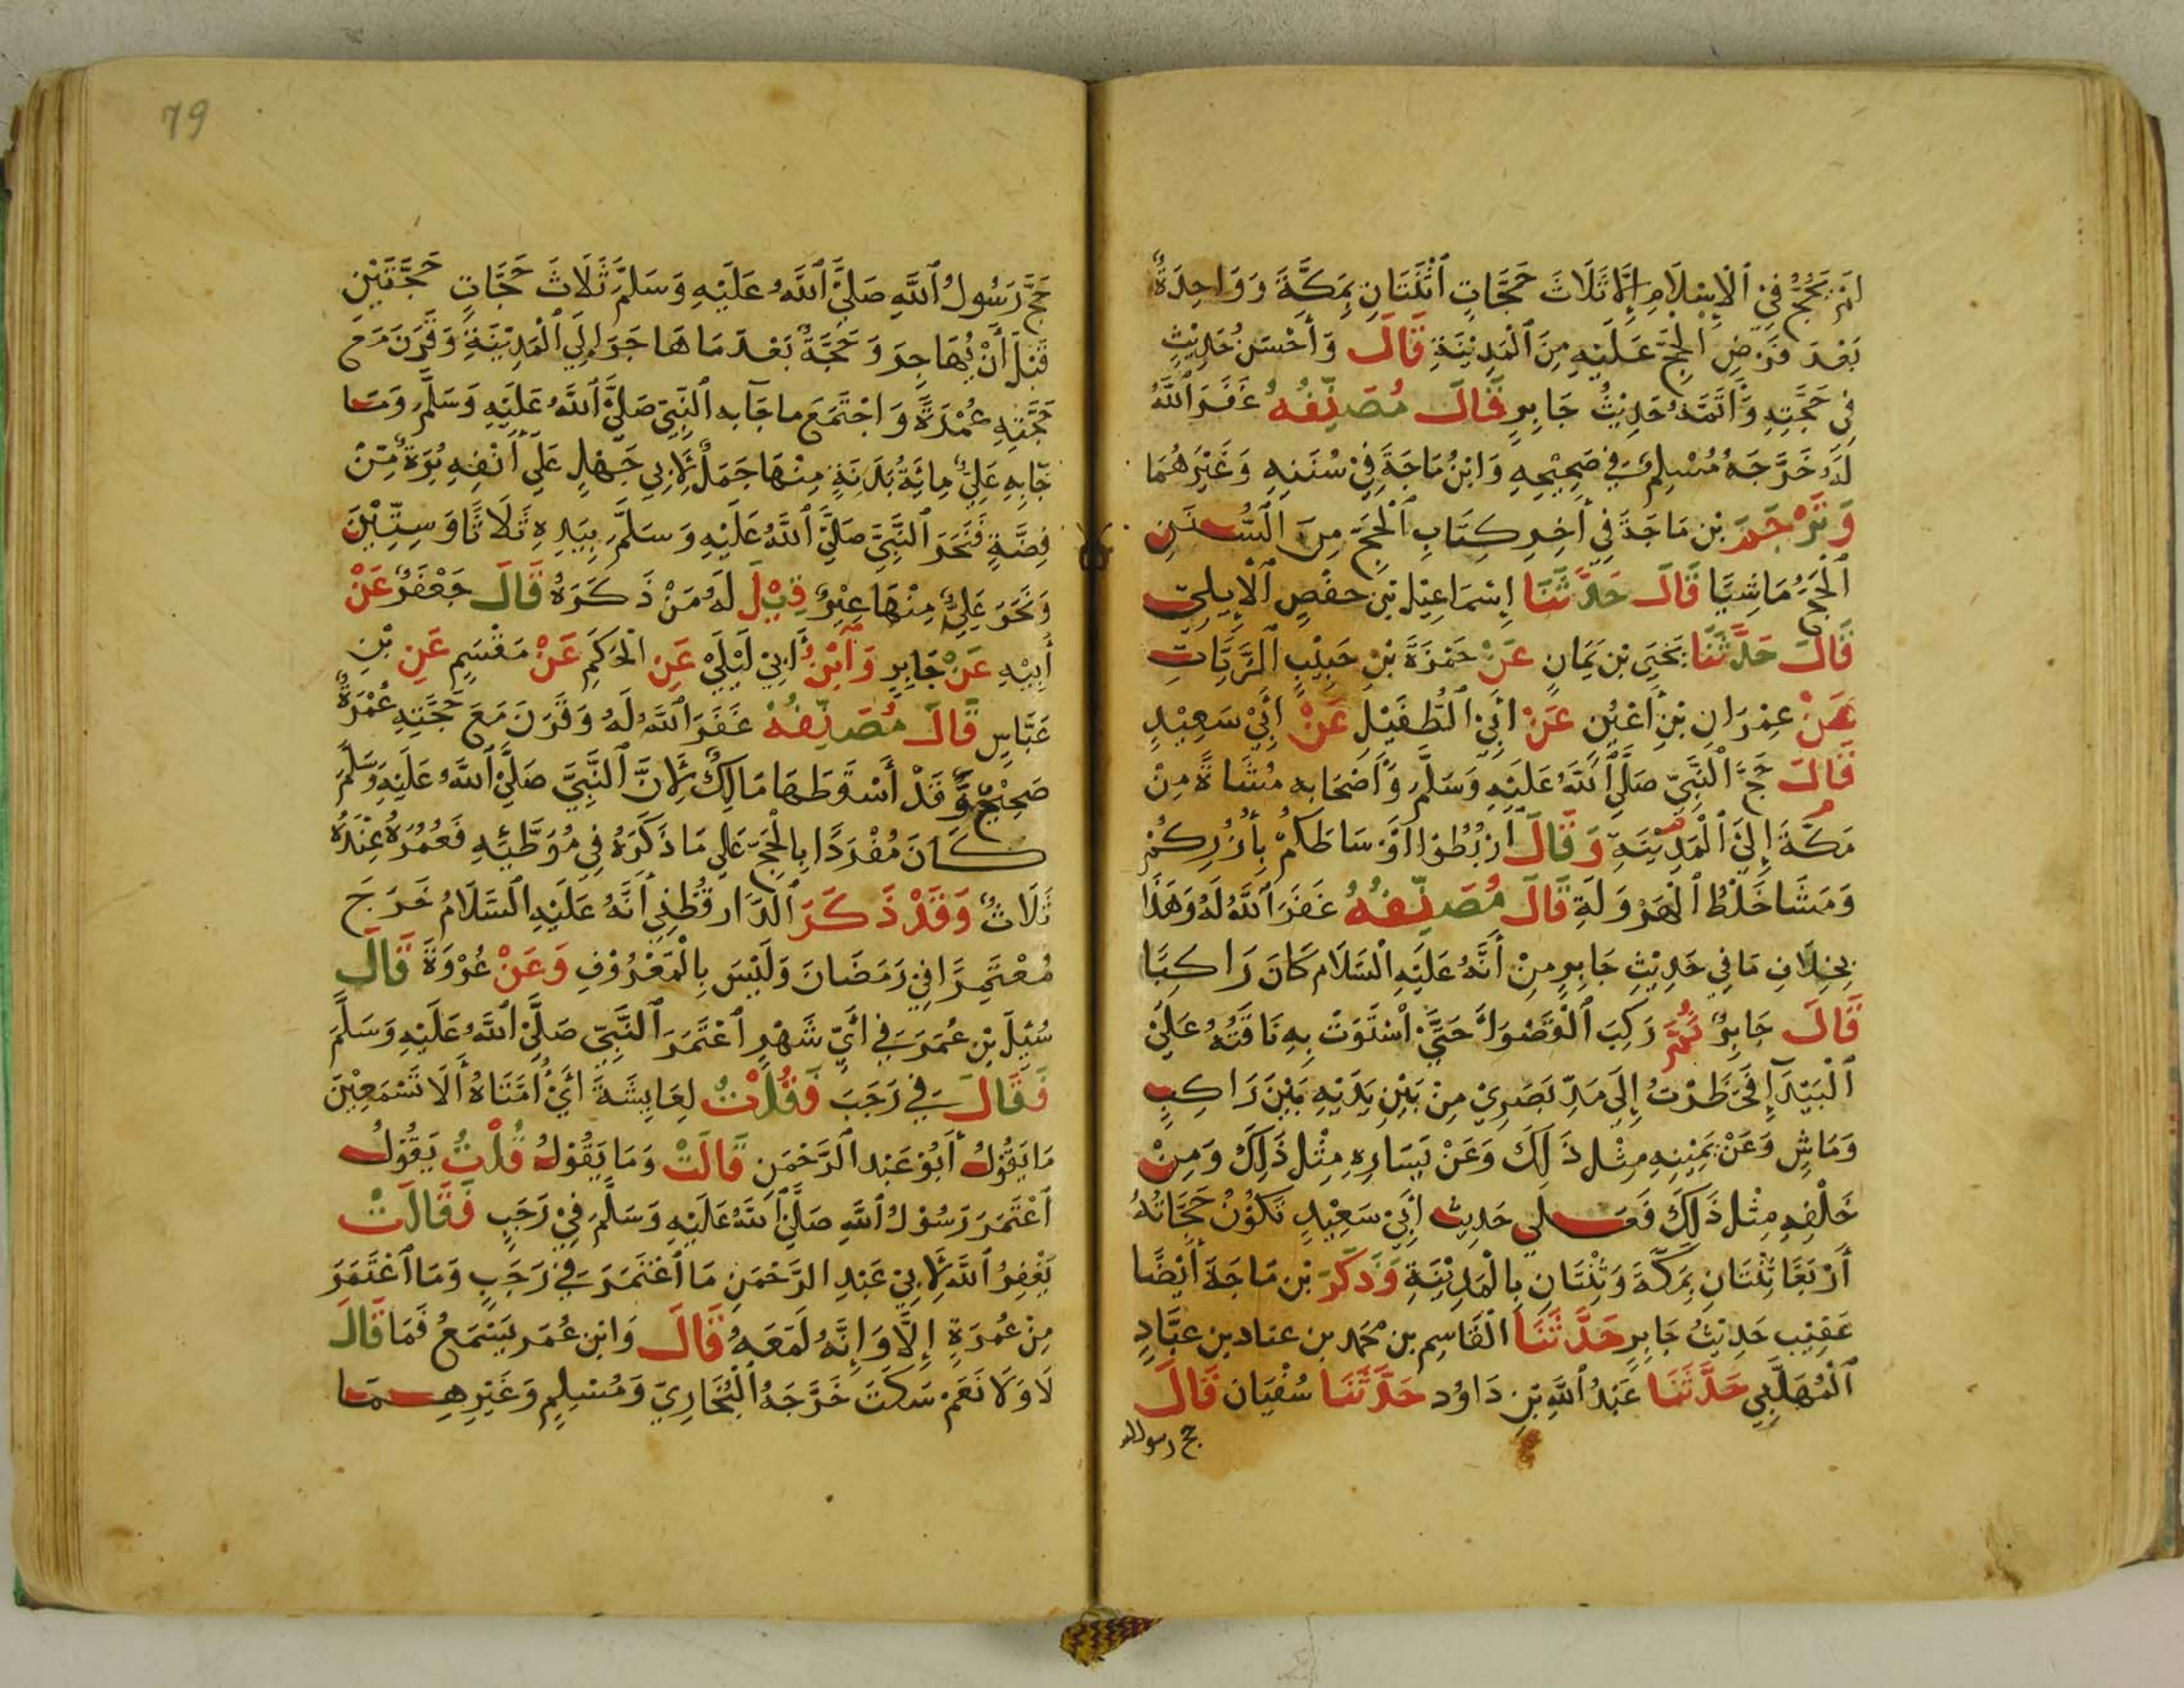 لم يحج في الإسلام إلا ثلاث حجات اثنتان بمكة وواحدة
بعد فرض الحج عليه من المدينة قال وأحسن حديث
في حجته وأتمه حديث جابر قال مصنفه غفر الله
له خرجه مسلم في صحيحه وابن ماجة في سننه وغيرهما
وترجم بن ماجة في أخر كتاب الحج من السنن
الحج ماشيا قال حدثنا إسماعيل بن حفص الأيلي
قال حدثنا يحيى بن يمان عن حمزة بن حبيب الزيات
عن عمران بن أعين عن أبي الطفيل عن أبي سعيد
قال حج النبي صلى الله عليه وسلم وأصحابه مشاة من
مكة إلى المدينة وقال اربطوا أوساطكم بأزركم
ومشا خلط الهرولة قال مصنفه غفر الله له وهذا
بخلاف ما في حديث جابر من أنه عليه السلام كان راكبا
قال جابر ثم ركب القصواء حتى استوت به ناقته على
البيداء نظرت إلى مد بصري من بين يديه بين راكب
وماش وعن يمينه مثل ذلك وعن يساره مثل ذلك ومن
خلفه مثل ذلك فعلى حديث أبي سعيد تكون حجاته
أربعا ثنتان بمكة وثنتان بالمدينة وذكر بن ماجة أيضا
عقيب حديث جابر حدثنا القاسم بن محمد بن عباد بن عباد
المهلبي حدثنا عبد الله بن داود حدثنا سفيان قال
حج رسول الله
79
حج رسول الله صلى الله عليه وسلم ثلاث حجات حجتين
قبل أن يهاجر وحجة بعد ما هاجر إلى المدينة وقرن مع
حجته عمرة واجتمع ما جآ به النبي صلى الله عليه وسلم وما
جآ به علي مائة بدنة منها جمل لأبي جهل على أنفه برة من
فضة فنحر النبي صلى الله عليه وسلم بيده ثلاثا وستين
ونحر علي منها غبر قيل له من ذكره قال جعفر عن
أبيه عن جابر وابن أبي ليلى عن الحكم عن مقسم عن بن
عباس قال مصنفه غفر الله له وقرن مع حجته عمرة
صحيح وقد أسقطها مالك لأن النبي صلى الله عليه وسلم
كان مفردا بالحج على ما ذكره في موطئه فعمره عنده
ثلاث وقد ذكر الدارقطني أنه عليه السلام خرج
معتمرا في رمضان وليس بالمعروف وعن عروة قال
سئل بن عمر في أي شهر اعتمر النبي صلى الله عليه وسلم
فقال في رجب فقلت لعايشة أي أمتاه ألا تسمعين
ما يقول أبو عبد الرحمن قالت وما يقول قلت يقول
اعتمر رسول الله صلى الله عليه وسلم في رجب فقالت
يغفر الله لأبي عبد الرحمن ما اعتمر في رجب وما اعتمر
من عمرة إلا وإنه لمعه قال وابن عمر يسمع فما قال
لا ولا نعم سكت خرجه البخاري ومسلم وغيرهما